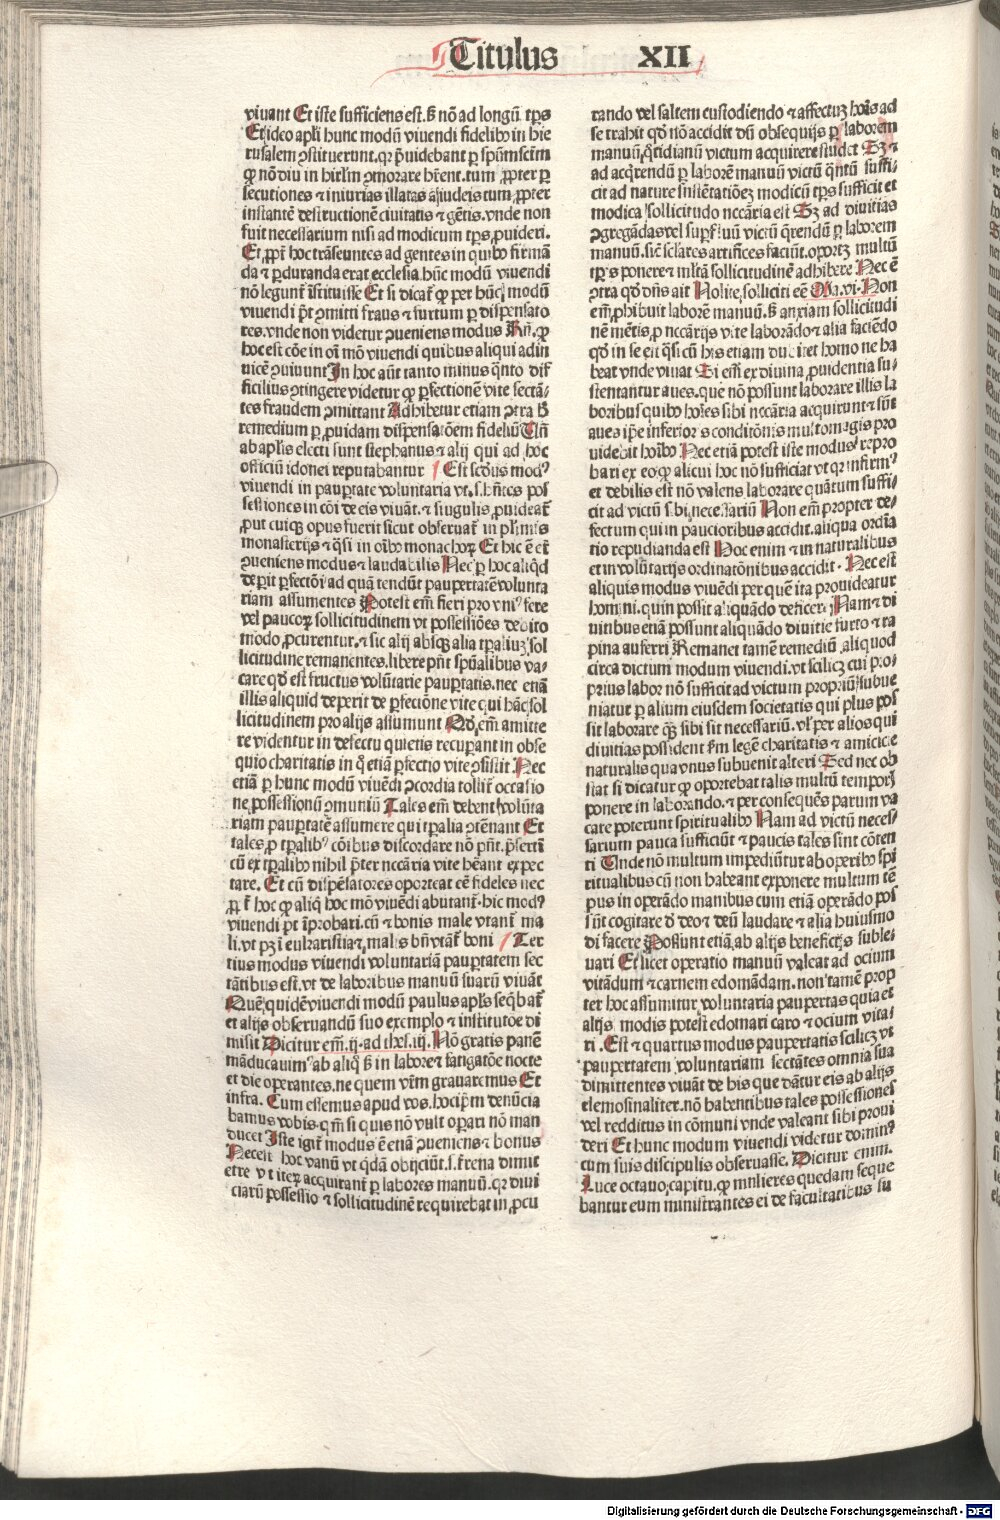 Titulus XII
viuant Et iste sufficiens est. s̄ nō ad longū tp̄s
Et ideo apl̄i hunc modū viuendi fidelibꝯ in hie
rusalem ꝯstituerunt. qꝛ p̄uidebant ꝑ spūmsctm̄
ꝙ nō diu in hirlm̄ ꝯmorare hēent. tum ꝓpter ꝑ
secutiones ⁊ iniurias illatas a iudeis tum ꝓpter
instantē destructionē ciuitatis ⁊ gētis. vnde non
fuit necessarium nisi ad modicum tp̄s ꝓuideri.
Et ꝓpt̄ hoc trāseuntes ad gentes in quibꝯ firmā
da ⁊ ꝑduranda erat ecclesia. hūc modū viuendi
nō legunt̄ īstituisse Et si dicat̄ ꝙ per hūc modū
viuendi pt̄ ꝯmitti fraus ⁊ furtum ꝑ dispensato
res. vnde non videtur ꝯueniens modus Rn̄. ꝙ
hoc est cōe in oī mō viuendi quibus aliqui adin
uicē ꝯuiuunt In hoc aūt tanto minus q̄nto dif
ficilius ꝯtingere videtur ꝙ ꝑfectionē vite sectā-
tes fraudem ꝯmittant Adhibetur etiam ꝯtra h̄
remedium ꝑ ꝓuidam dispensatōem fidelium Un̄
ab apl̄is electi sunt stephanus ⁊ alij qui ad hoc
officiū idonei reputabantur Est scd̄us modꝰ
viuendi in paup̄tate voluntaria vt. s. hn̄tes pos
sessiones in cōi de eis viuāt. ⁊ singulis ꝓuideat̄
ꝓut cuiqꝫ opus fuerit sicut obseruat̄ in pl̄imis
monasterijs ⁊ q̄si in oībꝯ monachoꝝ Et hic ē et̄
ꝯueniens modus ⁊ laudabilis Nec ꝑ hoc aliq̄d
deꝑit ꝑfectōi ad quā tendūt paupertatē volunta
riam assumentes Potest em̄ fieri pro vniꝰ fere
vel paucoꝝ sollicitudinem vt possessiōes debito
modo ꝓcurentur. ⁊ sic alij absqꝫ alia tꝑaliuꝫ sol
licitudine remanentes. libere pn̄t spūalibus va-
care qd̄ est fructus volūtarie paup̄tatis. nec etiā
illis aliquid deperit de ꝑfectione vite qui hāc sol
licitudinem pro alijs assumunt Qd̄ em̄ amitte
re videntur in defectu quietis recuꝑant in obse
quio charitatis in q̄ etiā ꝑfectio vite ꝯsistit Nec
etiā ꝑ hunc modū viuēdi ꝯcordia tollit̄ occasio
ne possessionū ꝯmuniū Tales em̄ debent volūta
riam paup̄tatē assumere qui tꝑalia ꝯtēnant Et
tales ꝓ tꝑalibꝰ cōibus discordare nō pn̄t. p̄sertī
cū ex tꝑalibꝯ nihil p̄ter nccāria vite hēant expec
tare. Et cū dispēsatores oporteat eē fideles nec
ꝓpt̄ hoc ꝙ aliq̄ hoc mō viuēdi abutant̄. hic modꝰ
viuendi pt̄ īprobari. cū ⁊ bonis male vtant̄ ma
li. vt pꝫ ī eukaristia ⁊ malis bn̄ vtāt̄ boni Ter
tius modus viuendi voluntariā paup̄tatem sec
tātibus est. vt de laboribus manuū suarū viuāt
Quē quidē viuendi modū paulus apl̄s seq̄bat̄
et alijs obseruandū suo exemplo ⁊ institutōe di
misit Dicitur em̄. ij. ad thes. iij. Nō gratis panē
māducauimꝰ ab aliq̄ s̄ in labore ⁊ fatigatōe nocte
et die operantes. ne quem vr̄m grauaremus Et
infra. Cum essemus apud vos. hoc ip̄m denūcia
bamus vobis. qm̄ si quis nō vult oꝑari nō man
ducet Iste igit̄ modus ē etiā ꝯueniens ⁊ bonus
Nec est hoc vanū vt q̄dā obijciūt. s. terrena dimit
tere vt iteꝝ acquirant̄ ꝑ labores manuū. qꝛ diui
ciarū possessio ⁊ sollicitudinē requirebat in ꝓcu
rando vel saltem custodiendo ⁊ affectuꝫ hoīs ad
se trahit qd̄ nō accidit dū obsequijs ꝑ laborem
manuū q̄tidianū victum acquirere studet Sꝫ ⁊
ad acq̄rendū ꝑ laborē manuū victū q̄ntū suffi-
cit ad nature sustētatiōeꝫ modicū tp̄s sufficit et
modica sollicitudo nccāria est Sꝫ ad diuitias
ꝯgregādas vel supfluū victū q̄rendū ꝑ laborem
manuū. sic̄ sclāres artifices faciūt. oportꝫ multū
tp̄s ponere ⁊ mltā sollicitudinē adhibere Nec ē
ꝯtra qd̄ dn̄s ait Nolite solliciti eē Ma. vi. Non
em̄ ꝓhibuit laborē manuū. s̄ anxiam sollicitudi
nē mētis. pro nccārijs vite laborādo ⁊ alia faciēdo
qd̄ in se est q̄si cū his etiam dubitet homo ne ha
beat vnde viuat Si em̄ ex diuina ꝓuidentia su-
stentantur aues. que nō possunt laborare illis la
boribus quibꝯ hoīes sibi nccāria acquirunt ⁊ sūt
aues ip̄e inferioris conditōnis multomagis pro
uidebit hoībꝯ Nec etiā potest iste modusꝰ repro
bari ex eo ꝙ alicui hoc nō sufficiat vt qꝛ infirmꝰ
et debilis est nō valens laborare quātum suffi-
cit ad victū sibi necessariū Non em̄ propter de-
fectum qui in paucioribus accidit. aliqua ordīa
tio repudianda est Hoc enim ⁊ in naturalibus
et in volūtarijs ordinatōnibus accidit. Nec est
aliquis modus viuēdi per quē ita prouideatur
homini. quin possit aliquādo deficere. Nam ⁊ di
uitibus etiā possunt aliquādo diuitie furto ⁊ ra
pina auferri Remanet tamē remediū aliquod
circa dictum modum viuendi. vt scilicꝫ cui pro-
prius labor nō sufficit ad victum propriū subue
niatur ꝑ alium eiusdem societatis qui plus pos
sit laborare qꝫ sibi sit necessariū. vl̓ per alios qui
diuitias possident s̄m legē charitatis ⁊ amicicie
naturalis qua vnus subuenit alteri Sed nec ob
stat si dicatur ꝙ oportebat talis multū temporꝭ
ponere in laborando. ⁊ per consequēs parum va
care poterunt spiritualibꝯ Nam ad victū neces-
sarium pauca sufficiūt ⁊ paucis tales sint cōten
ti Unde nō multum impediūtur ab operibꝯ spī
ritualibus cū non habeant exponere multum tē
pus in operādo manibus cum etiā operādo pos
sūt cogitare d̄ deo ⁊ deū laudare ⁊ alia huiusmo
di facere Possunt etiā ab alijs beneficijs suble-
uari Et licet operatio manuū valeat ad ocium
vitādum ⁊ carnem edomādam. non tamē prop
ter hoc assumitur voluntaria paupertas quia et
alijs modis potest edomari caro ⁊ ocium vita-
ri. Est ⁊ quartus modus paupertatis scilicꝫ vt
paupertatem voluntariam sectātes omnia sua
dimittentes viuāt de his que dātur eis ab alijs
elemosinaliter. nō habentibus tales possessiones
vel redditus in cōmuni vnde valeant sibi proui
deri Et hunc modum viuendi videtur dominꝰ
cum suis discipulis obseruasse. Dicitur enim.
Luce octauo capitu. ꝙ mulieres quedam seque
bantur eum ministrantes ei de facultatibus su
Digitalisierung gefördert durch die Deutsche Forschungsgemeinschaft - DFG